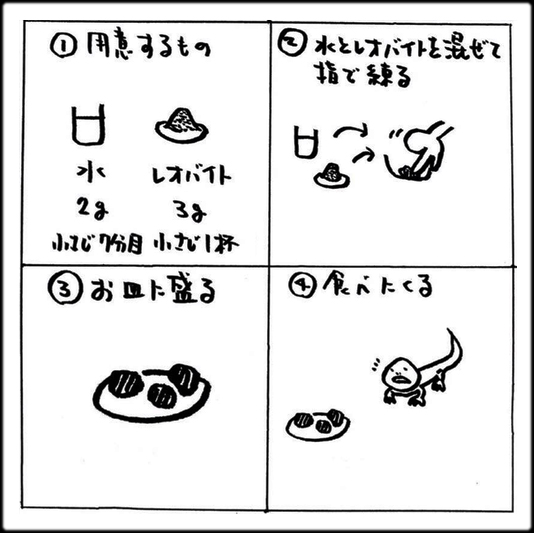 ① 用意するもの
水 レオバイト
2g 3g
小さじ7分目 小さじ1杯
② 水とレオバイトを混ぜて
指で練る
③ お皿に盛る
④ 食べにくる